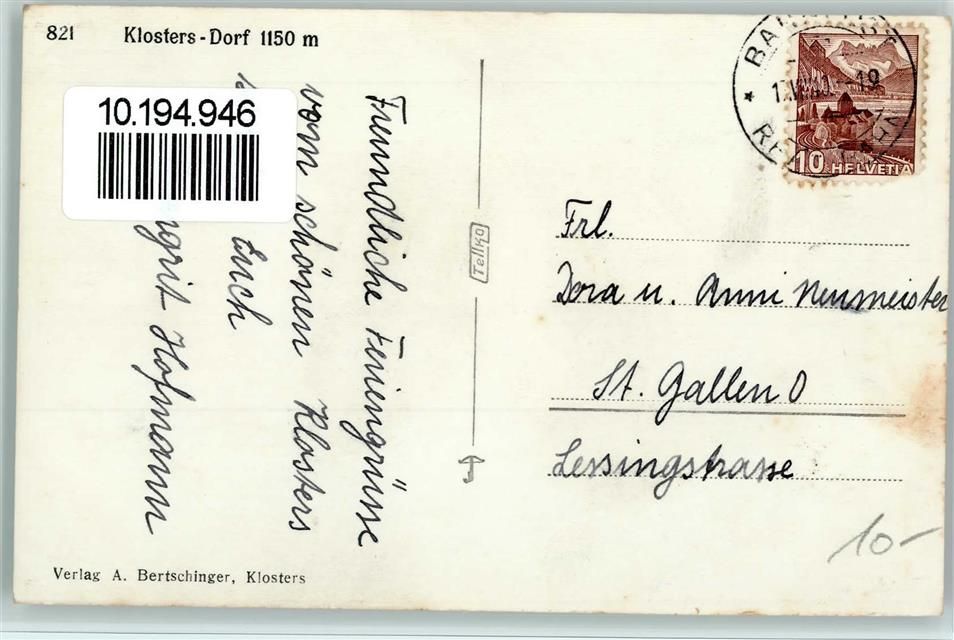 821 Klosters-Dorf 1150 m
10.194.946
Freundliche Feriengrüsse
vom schönen Klosters
Euch
Hofmann
Tellko
10 HELVETIA
Frl.
Dora u. Anni Neumeister
St. Gallen O
Lessingstrasse
10-
Verlag A. Bertschinger, Klosters